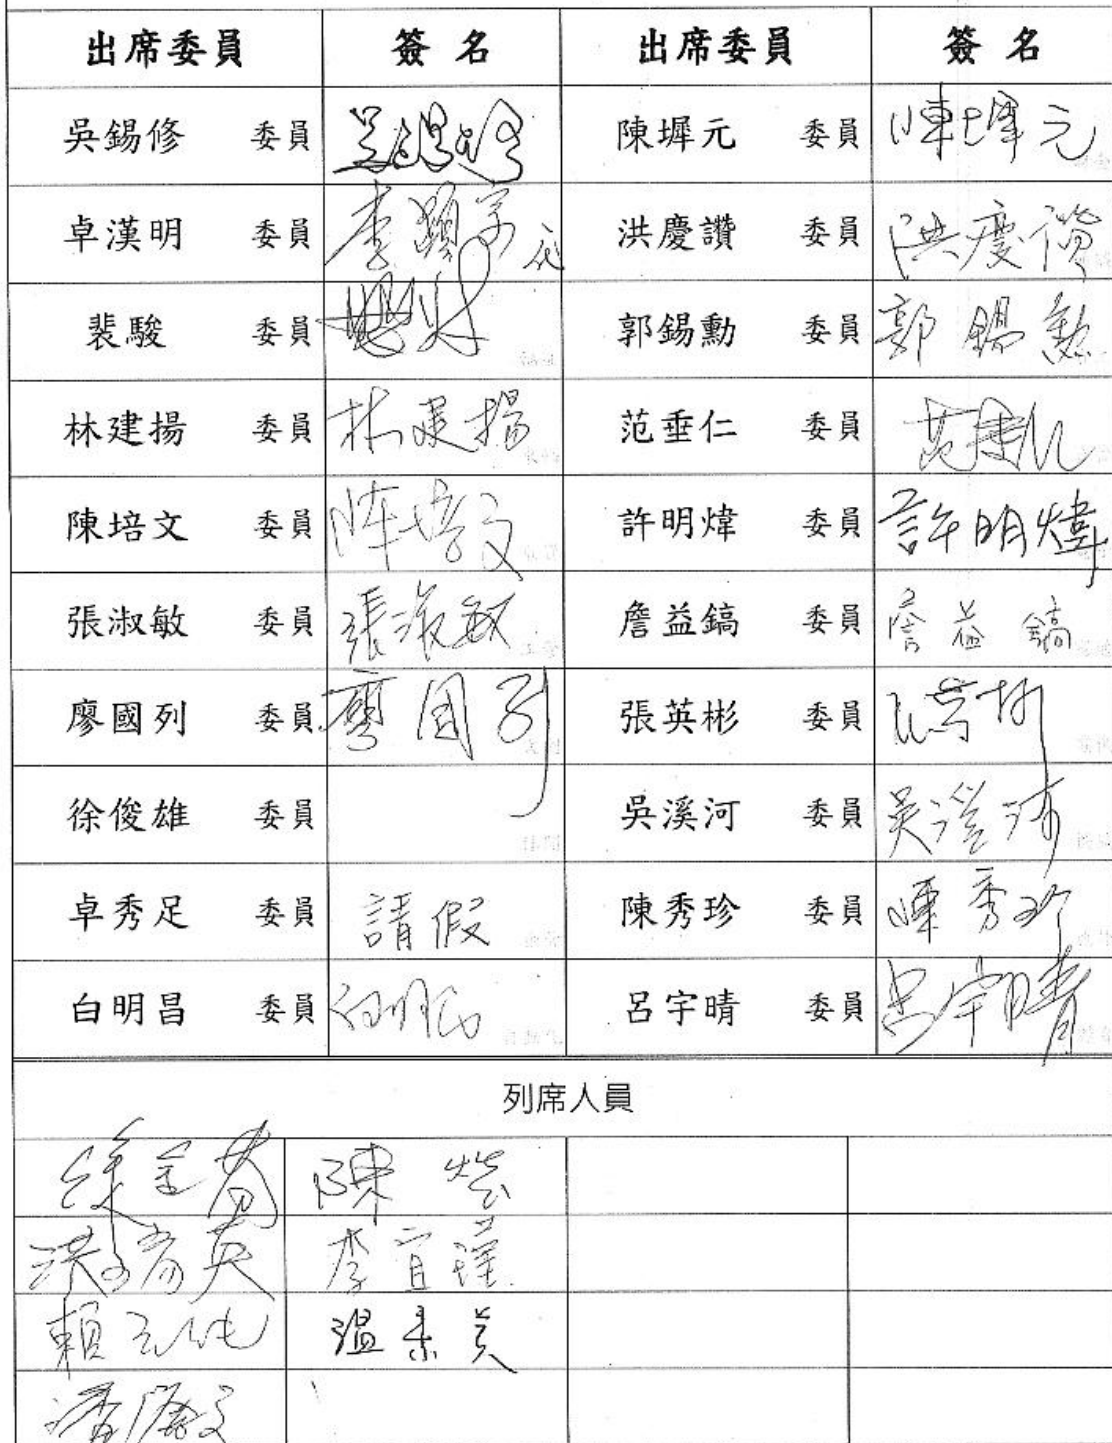 出席委員 簽名 出席委員 簽名
吳錫修 委員 陳墀元 委員 陳墀元
卓漢明 委員 李 代 洪慶讚 委員 洪慶讚
裴駿 委員 郭錫勳 委員 郭錫勳
林建揚 委員 林建揚 范垂仁 委員 范垂仁
陳培文 委員 陳培文 許明煒 委員 許明煒
張淑敏 委員 張淑敏 詹益鎬 委員 詹益鎬
廖國列 委員 廖國列 張英彬 委員 張英彬
徐俊雄 委員 吳溪河 委員 吳溪河
卓秀足 委員 請假 陳秀珍 委員 陳秀珍
白明昌 委員 白明昌 呂宇晴 委員 呂宇晴
列席人員
陳
李宜瑾
賴 溫素